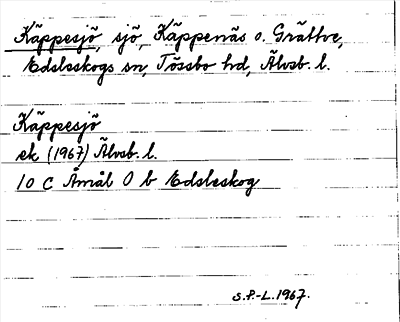 Käppesjö, sjö, Käppenäs o. Grättve,
Edsleskogs sn, Tössbo hd, Älvsb. l.
Käppesjö
ek (1967) Älvsb. l.
10 C Åmål O b Edsleskog
S.F.-L. 1967.